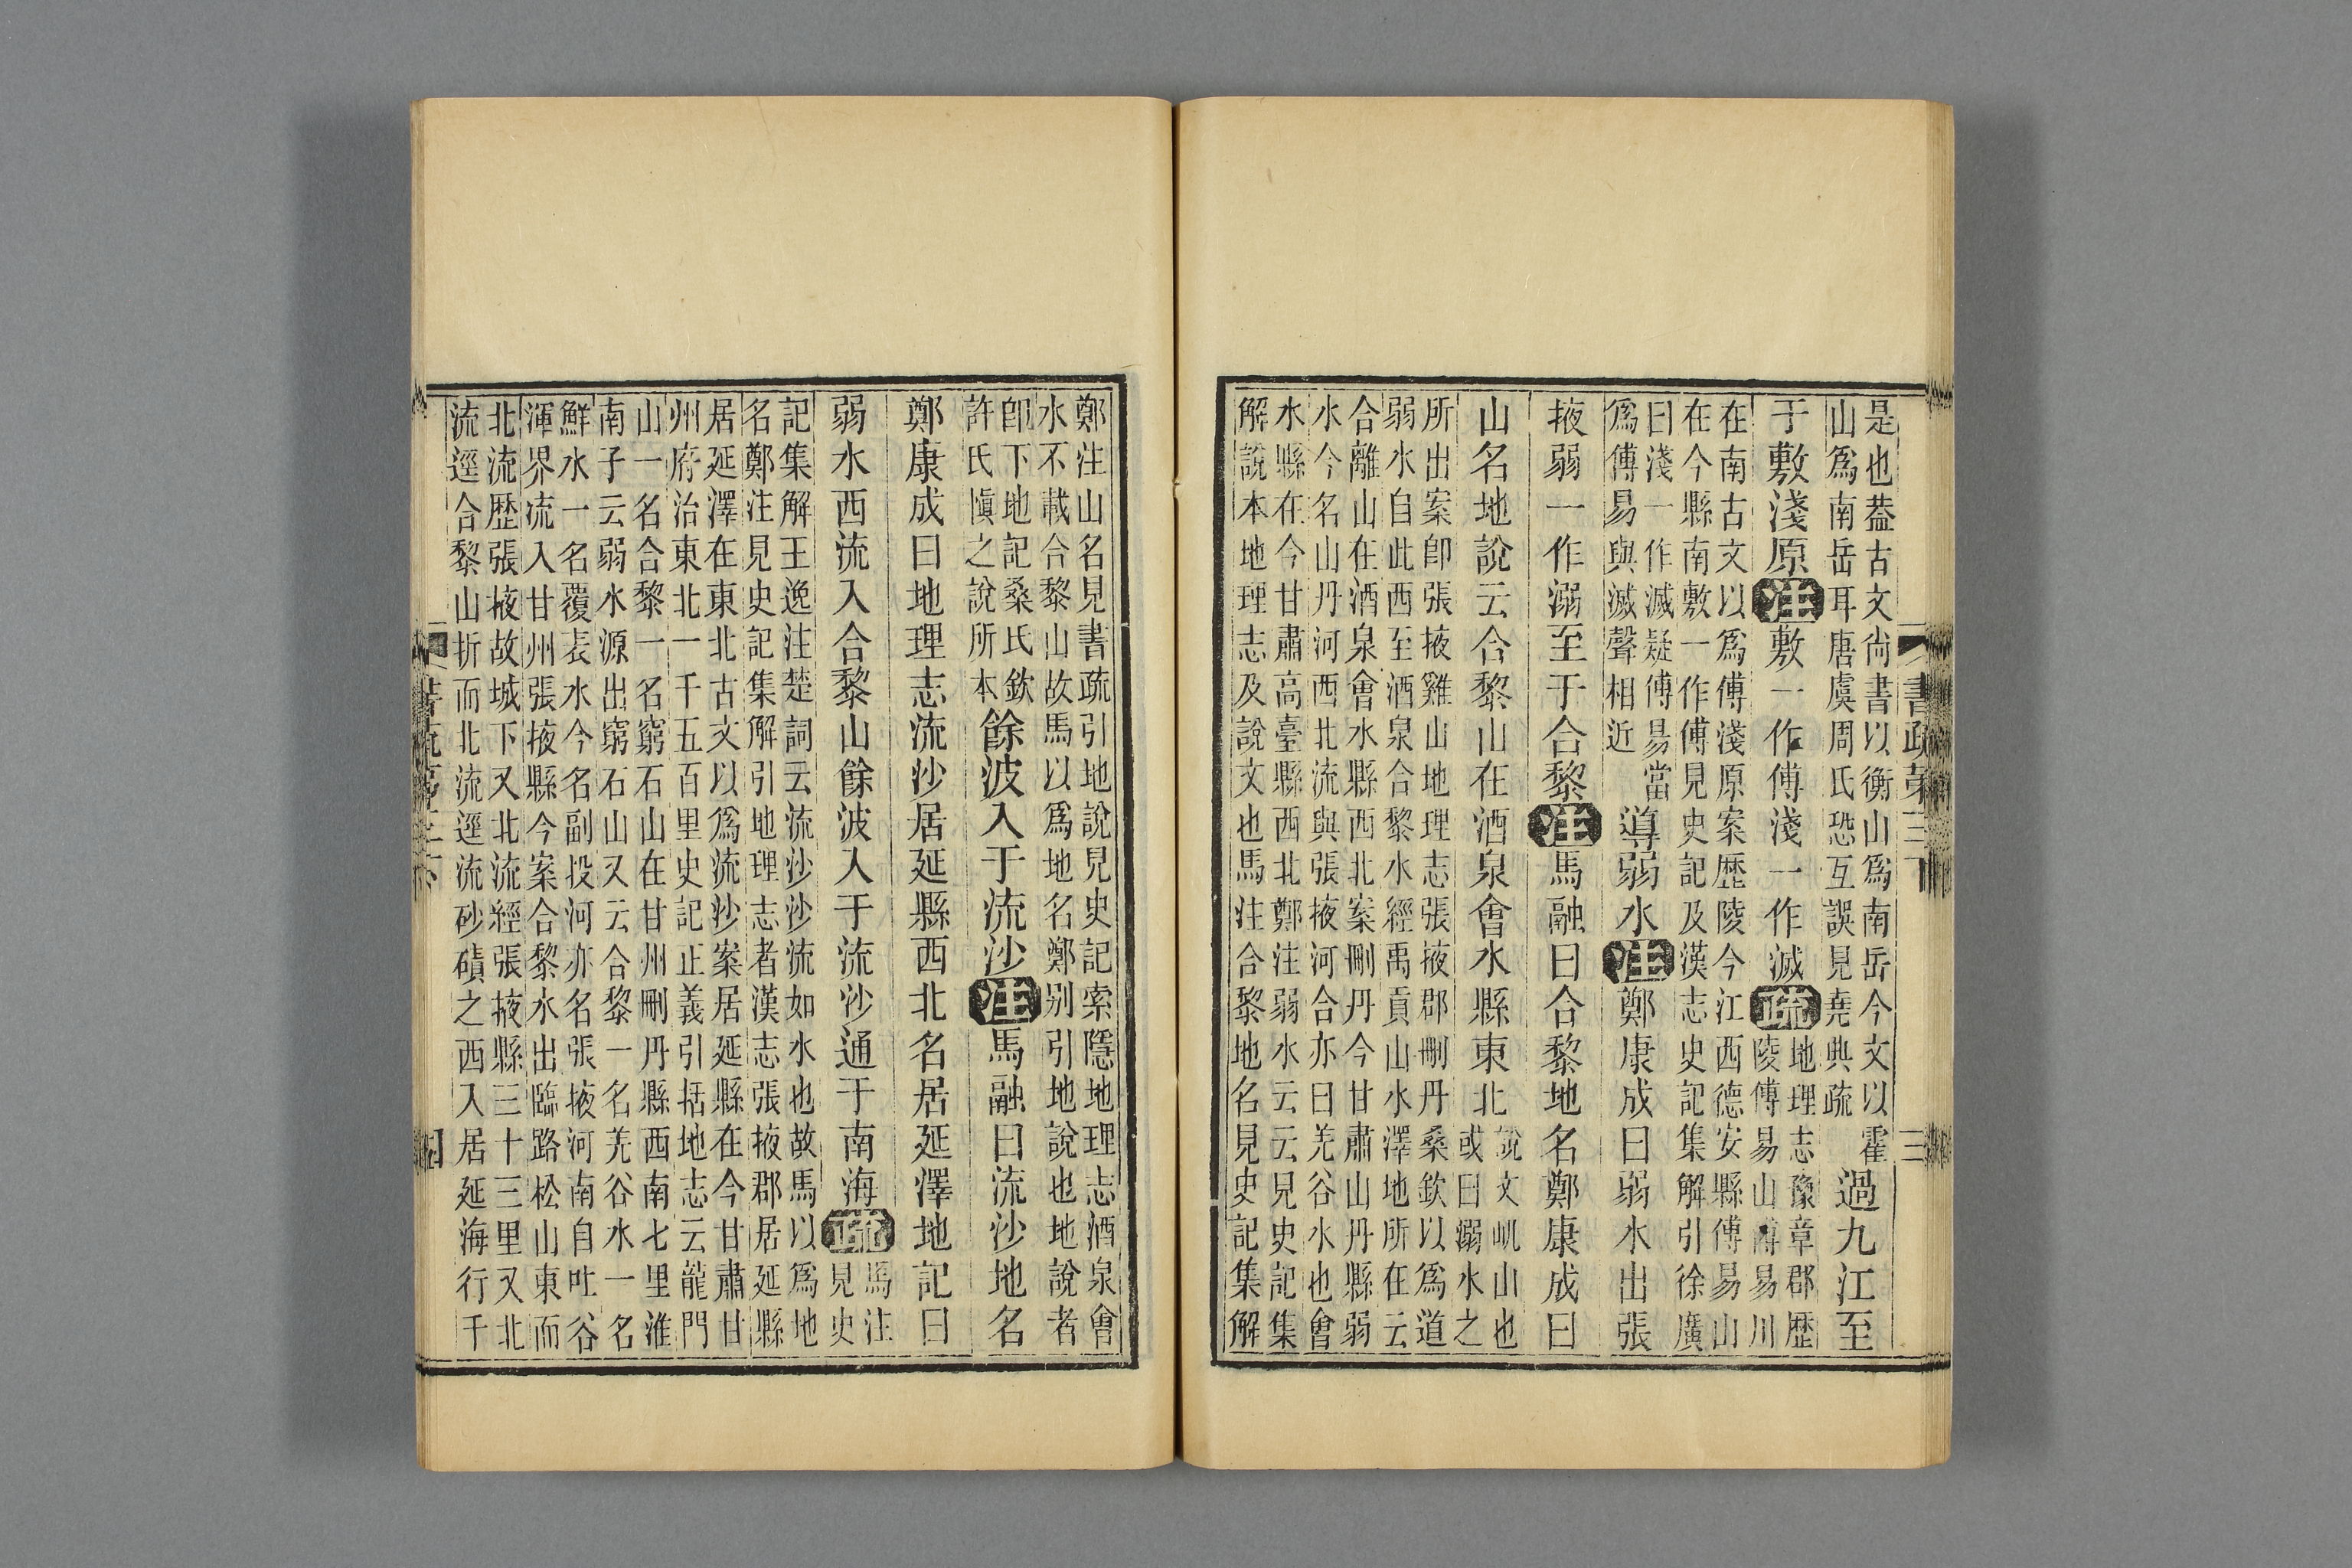 書疏第三下 三
是也葢古文尙書以衡山爲南岳今文以霍
山爲南岳耳唐虞周氏恐互誤見堯典疏
過九江至
于敷淺原注敷一作傅淺一作滅疏
地理志豫章郡歷
陵傅昜山傅昜川
在南古文以爲傅淺原案歷陵今江西德安縣傅昜山
在今縣南敷一作傅見史記及漢志史記集解引徐廣
曰淺一作滅疑傅昜當
爲傅昜與滅聲相近
導弱水注鄭康成曰弱水出張
掖弱一作溺至于合黎注馬融曰合黎地名鄭康成曰
山名地說云合黎山在酒泉會水縣東北
說文屼山也
或曰溺水之
所出案卽張掖雞山地理志張掖郡刪丹桑欽以爲道
弱水自此西至酒泉合黎水經禹貢山水澤地所在云
合離山在酒泉會水縣西北案刪丹今甘肅山丹縣弱
水今名山丹河西北流與張掖河合亦曰羌谷水也會
水縣在今甘肅高臺縣西北鄭注弱水云云見史記集
解說本地理志及說文也馬注合黎地名見史記集解
鄭注山名見書疏引地說見史記索隱地理志酒泉會
水不載合黎山故馬以爲地名鄭别引地說也地說者
卽下地記桑氏欽
許氏愼之說所本
餘波入于流沙注馬融曰流沙地名
鄭康成曰地理志流沙居延縣西北名居延澤地記曰
弱水西流入合黎山餘波入于流沙通于南海疏
馬注
見史
記集解王逸注楚詞云流沙沙流如水也故馬以爲地
名鄭注見史記集解引地理志者漢志張掖郡居延縣
居延澤在東北古文以爲流沙案居延縣在今甘肅甘
州府治東北一千五百里史記正義引括地志云龍門
山一名合黎一名窮石山在甘州刪丹縣西南七里淮
南子云弱水源出窮石山又云合黎一名羌谷水一名
鮮水一名覆表水今名副投河亦名張掖河南自吐谷
渾界流入甘州張掖縣今案合黎水出臨路松山東而
北流歷張掖故城下又北流經張掖縣三十三里又北
流逕合黎山折而北流逕流砂磧之西入居延海行千